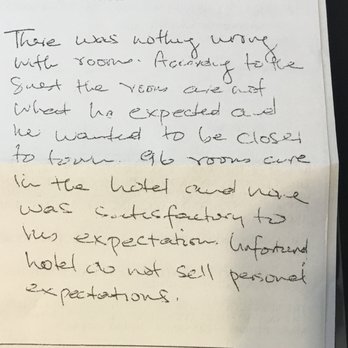 There was nothing wrong
with rooms. According to the
guest the rooms are not
what he expected and
he wanted to be closer
to town. 96 rooms are
in the hotel and none
was satisfactory to
his expectation. Unfortund
hotel do not sell personal
expectations.